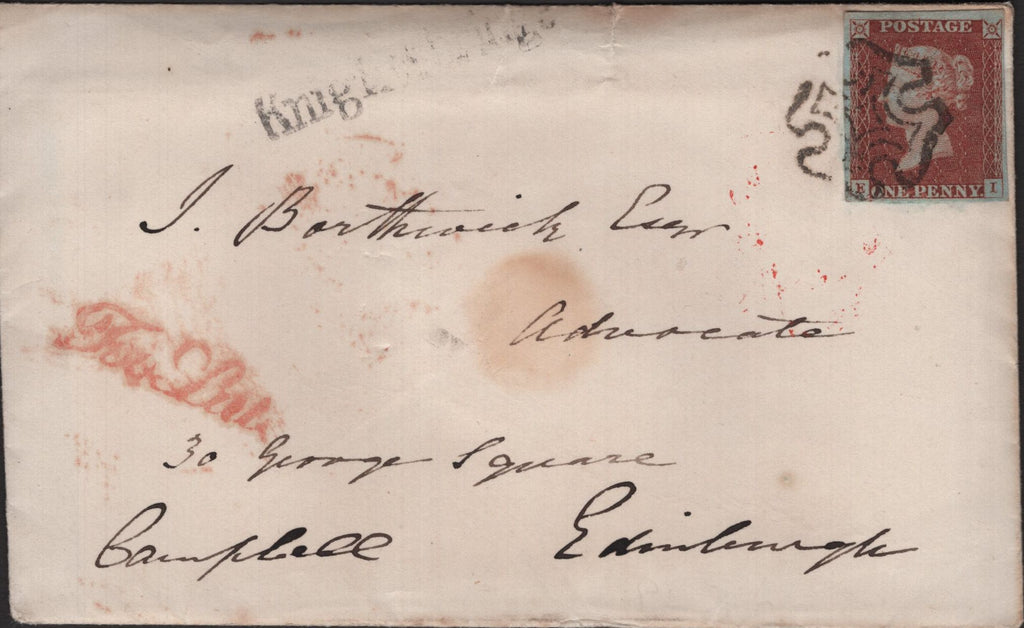 Knightsbridge
POSTAGE
E ONE PENNY I
J. Borthwick Esqr
Advocate
Too Late
30 George Square
Campbell Edinburgh